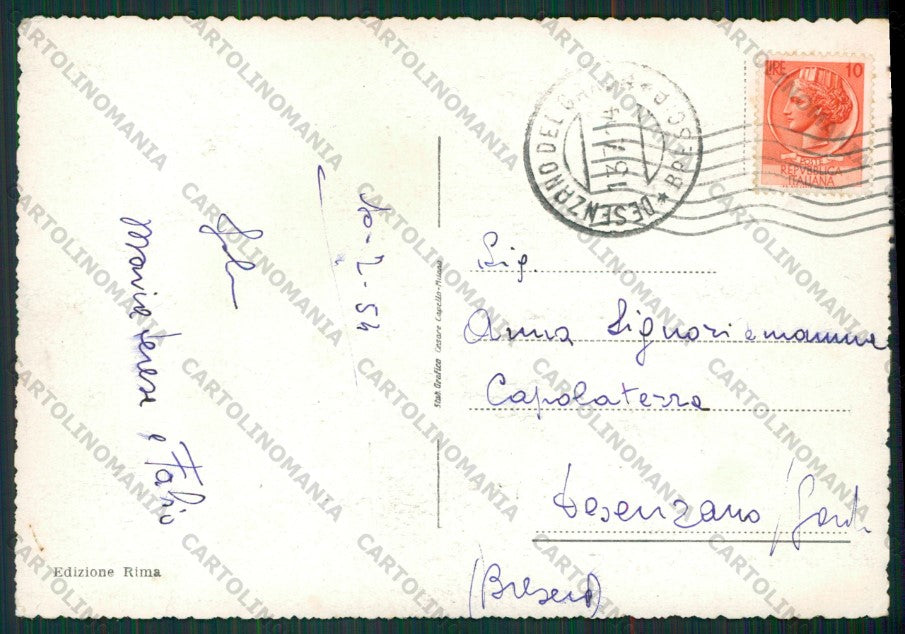 DESENZANO DEL GARDA * BRESCIA *
LIRE 10
POSTE
REPVBBLICA
ITALIANA
Sig.
Anna Signori e mamma
Capolaterra
Desenzano / Gard.
(Brescia)
Maria teresa e Fabio
Stab. Grafico Cesare Capello - Milano
Edizione Rima
CARTOLINOMANIA